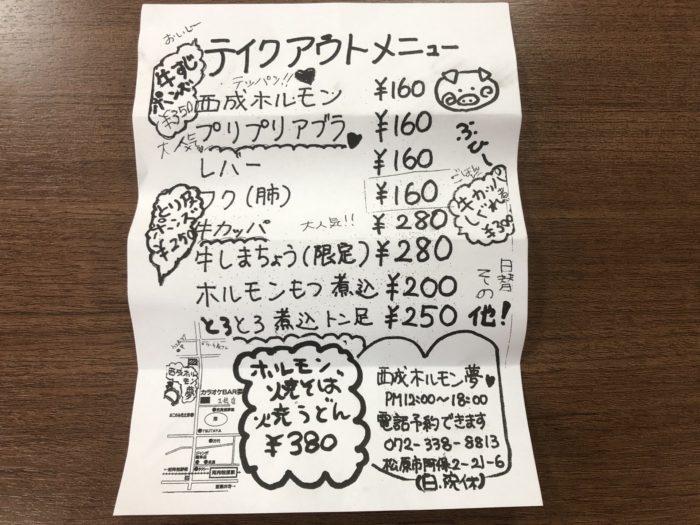 おいしー
牛すじ
ポンズ
¥350
テイクアウトメニュー
テッパン!!
西成ホルモン ¥160
プリプリアブラ ¥160
大人気
レバー ¥160
フク(肺) ¥160
牛カッパ 大人気!! ¥280
牛しまちょう(限定) ¥280
ホルモンもつ煮込 ¥200
とろとろ煮込トン足 ¥250
ぶひー
ごはんに
牛カッパ
しぐれ煮
¥300
¥250
日替
その他!
ホルモン、
焼そば
焼うどん
¥380
西成ホルモン夢
PM12:00〜18:00
電話予約できます
072-338-8813
松原市阿保2-21-6
西成ホルモン夢
カラオケBAR
TSUTAYA